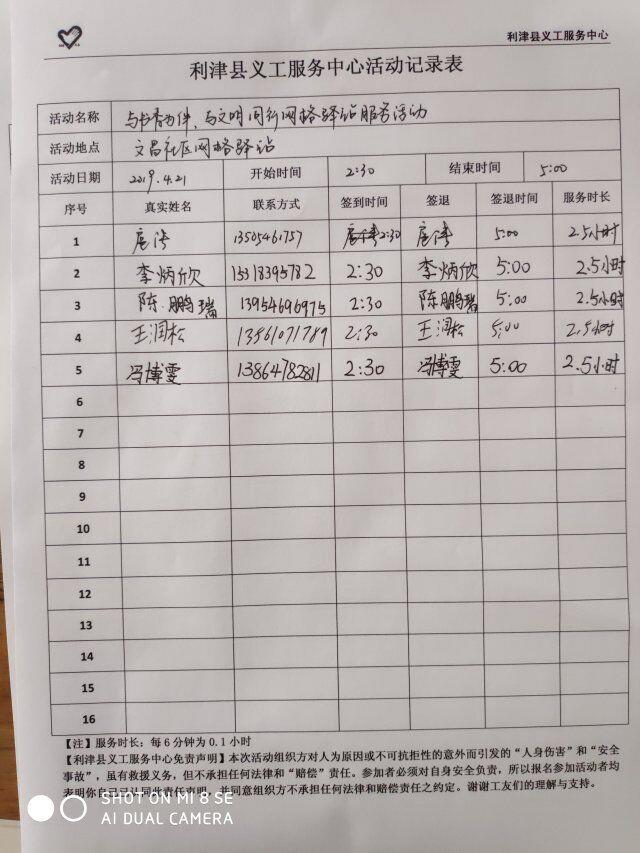 利津县义工服务中心
利津县义工服务中心活动记录表
活动名称 与书香为伴、与文明同行网格驿站服务活动
活动地点 文昌社区网格驿站
活动日期 2019.4.21 开始时间 2:30 结束时间 5:00
序号 真实姓名 联系方式 签到时间 签退 签退时间 服务时长
1 13505461757 2:30 5:00 2.5小时
2 李炳欣 15318395782 2:30 李炳欣 5:00 2.5小时
3 陈鹏瑞 13954696975 2:30 陈鹏瑞 5:00 2.5小时
4 王润松 13561071789 2:30 王润松 5:00 2.5小时
5 冯博雯 13864782811 2:30 冯博雯 5:00 2.5小时
6
7
8
9
10
11
12
13
14
15
16
【注】服务时长：每6分钟为0.1小时
【利津县义工服务中心免责声明】本次活动组织方对人为原因或不可抗拒性的意外而引发的“人身伤害”和“安全
事故”，虽有救援义务，但不承担任何法律和“赔偿”责任。参加者必须对自身安全负责，所以报名参加活动者均
表明你自己已认同此责任声明，并同意组织方不承担任何法律和赔偿责任之约定。谢谢工友们的理解与支持。
SHOT ON MI 8 SE
AI DUAL CAMERA